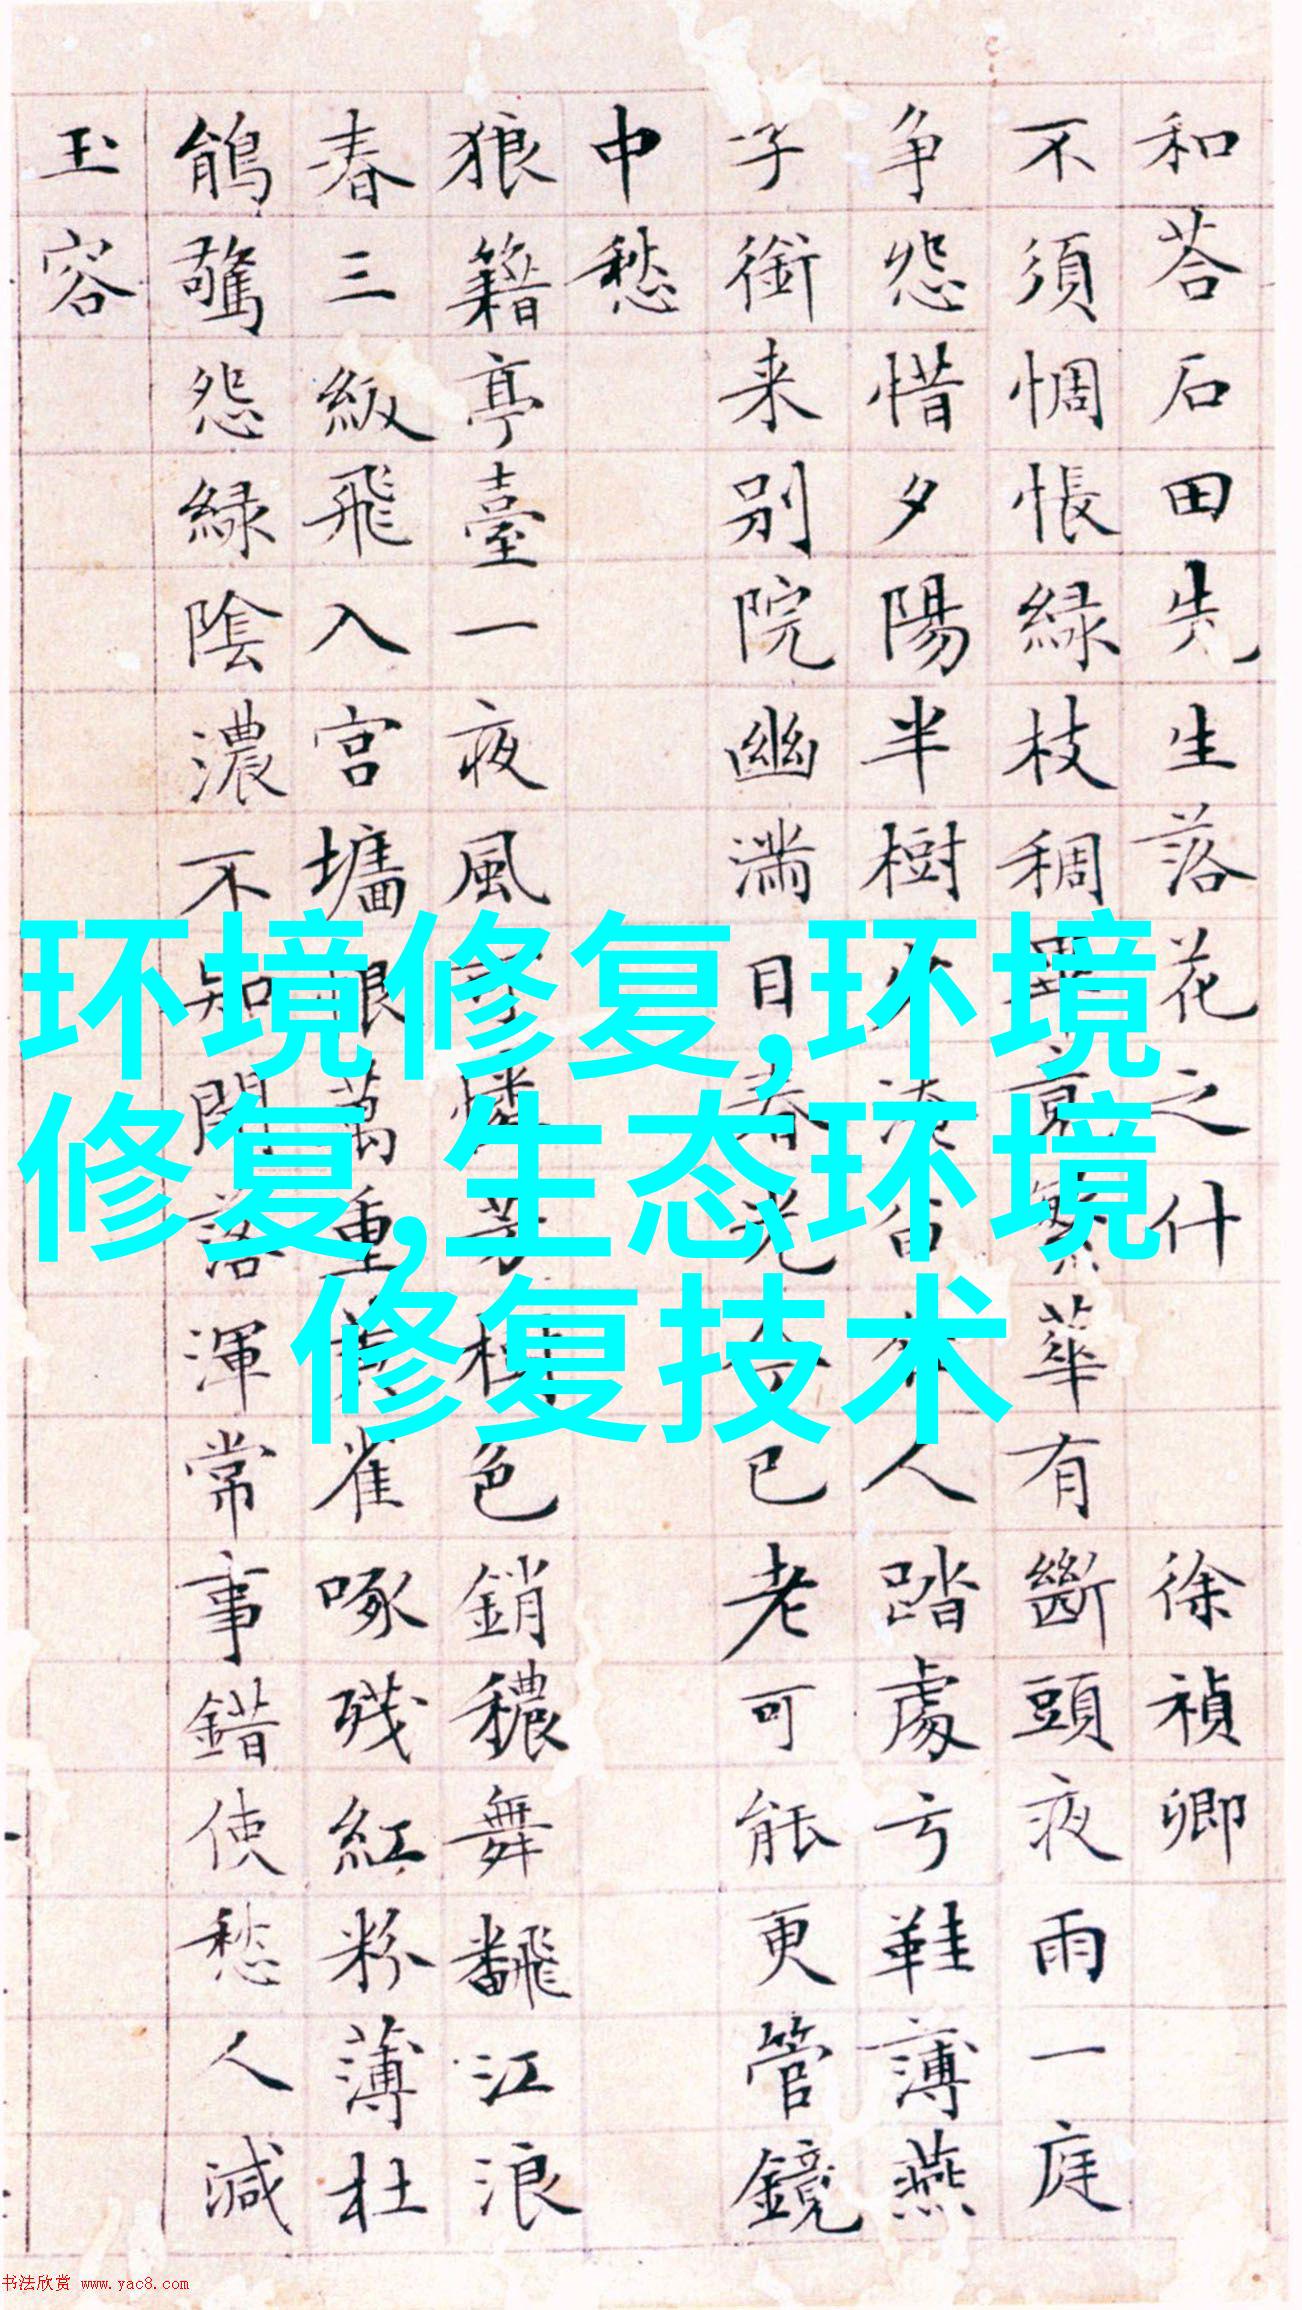 和荅石田先生落花之什 徐禎卿
不須惆悵綠枝稠 畢竟繁華有斷頭夜雨一庭
争怨惜夕陽半樹少淹留 人踏處亏鞋薄燕
子銜来别院幽滿目春光今已老可能更管鏡
中愁
狼籍亭臺一夜風可憐芳樹色銷穠舞飜江浪
春三級飛入宫墻恨萬重雀啄残紅粉薄杜
鵑驚怨綠陰濃不知開落渾常事錯使愁人減
玉容
环境修复,环境
修复,生态环境
修复技术
书法欣赏 www.yac8.com